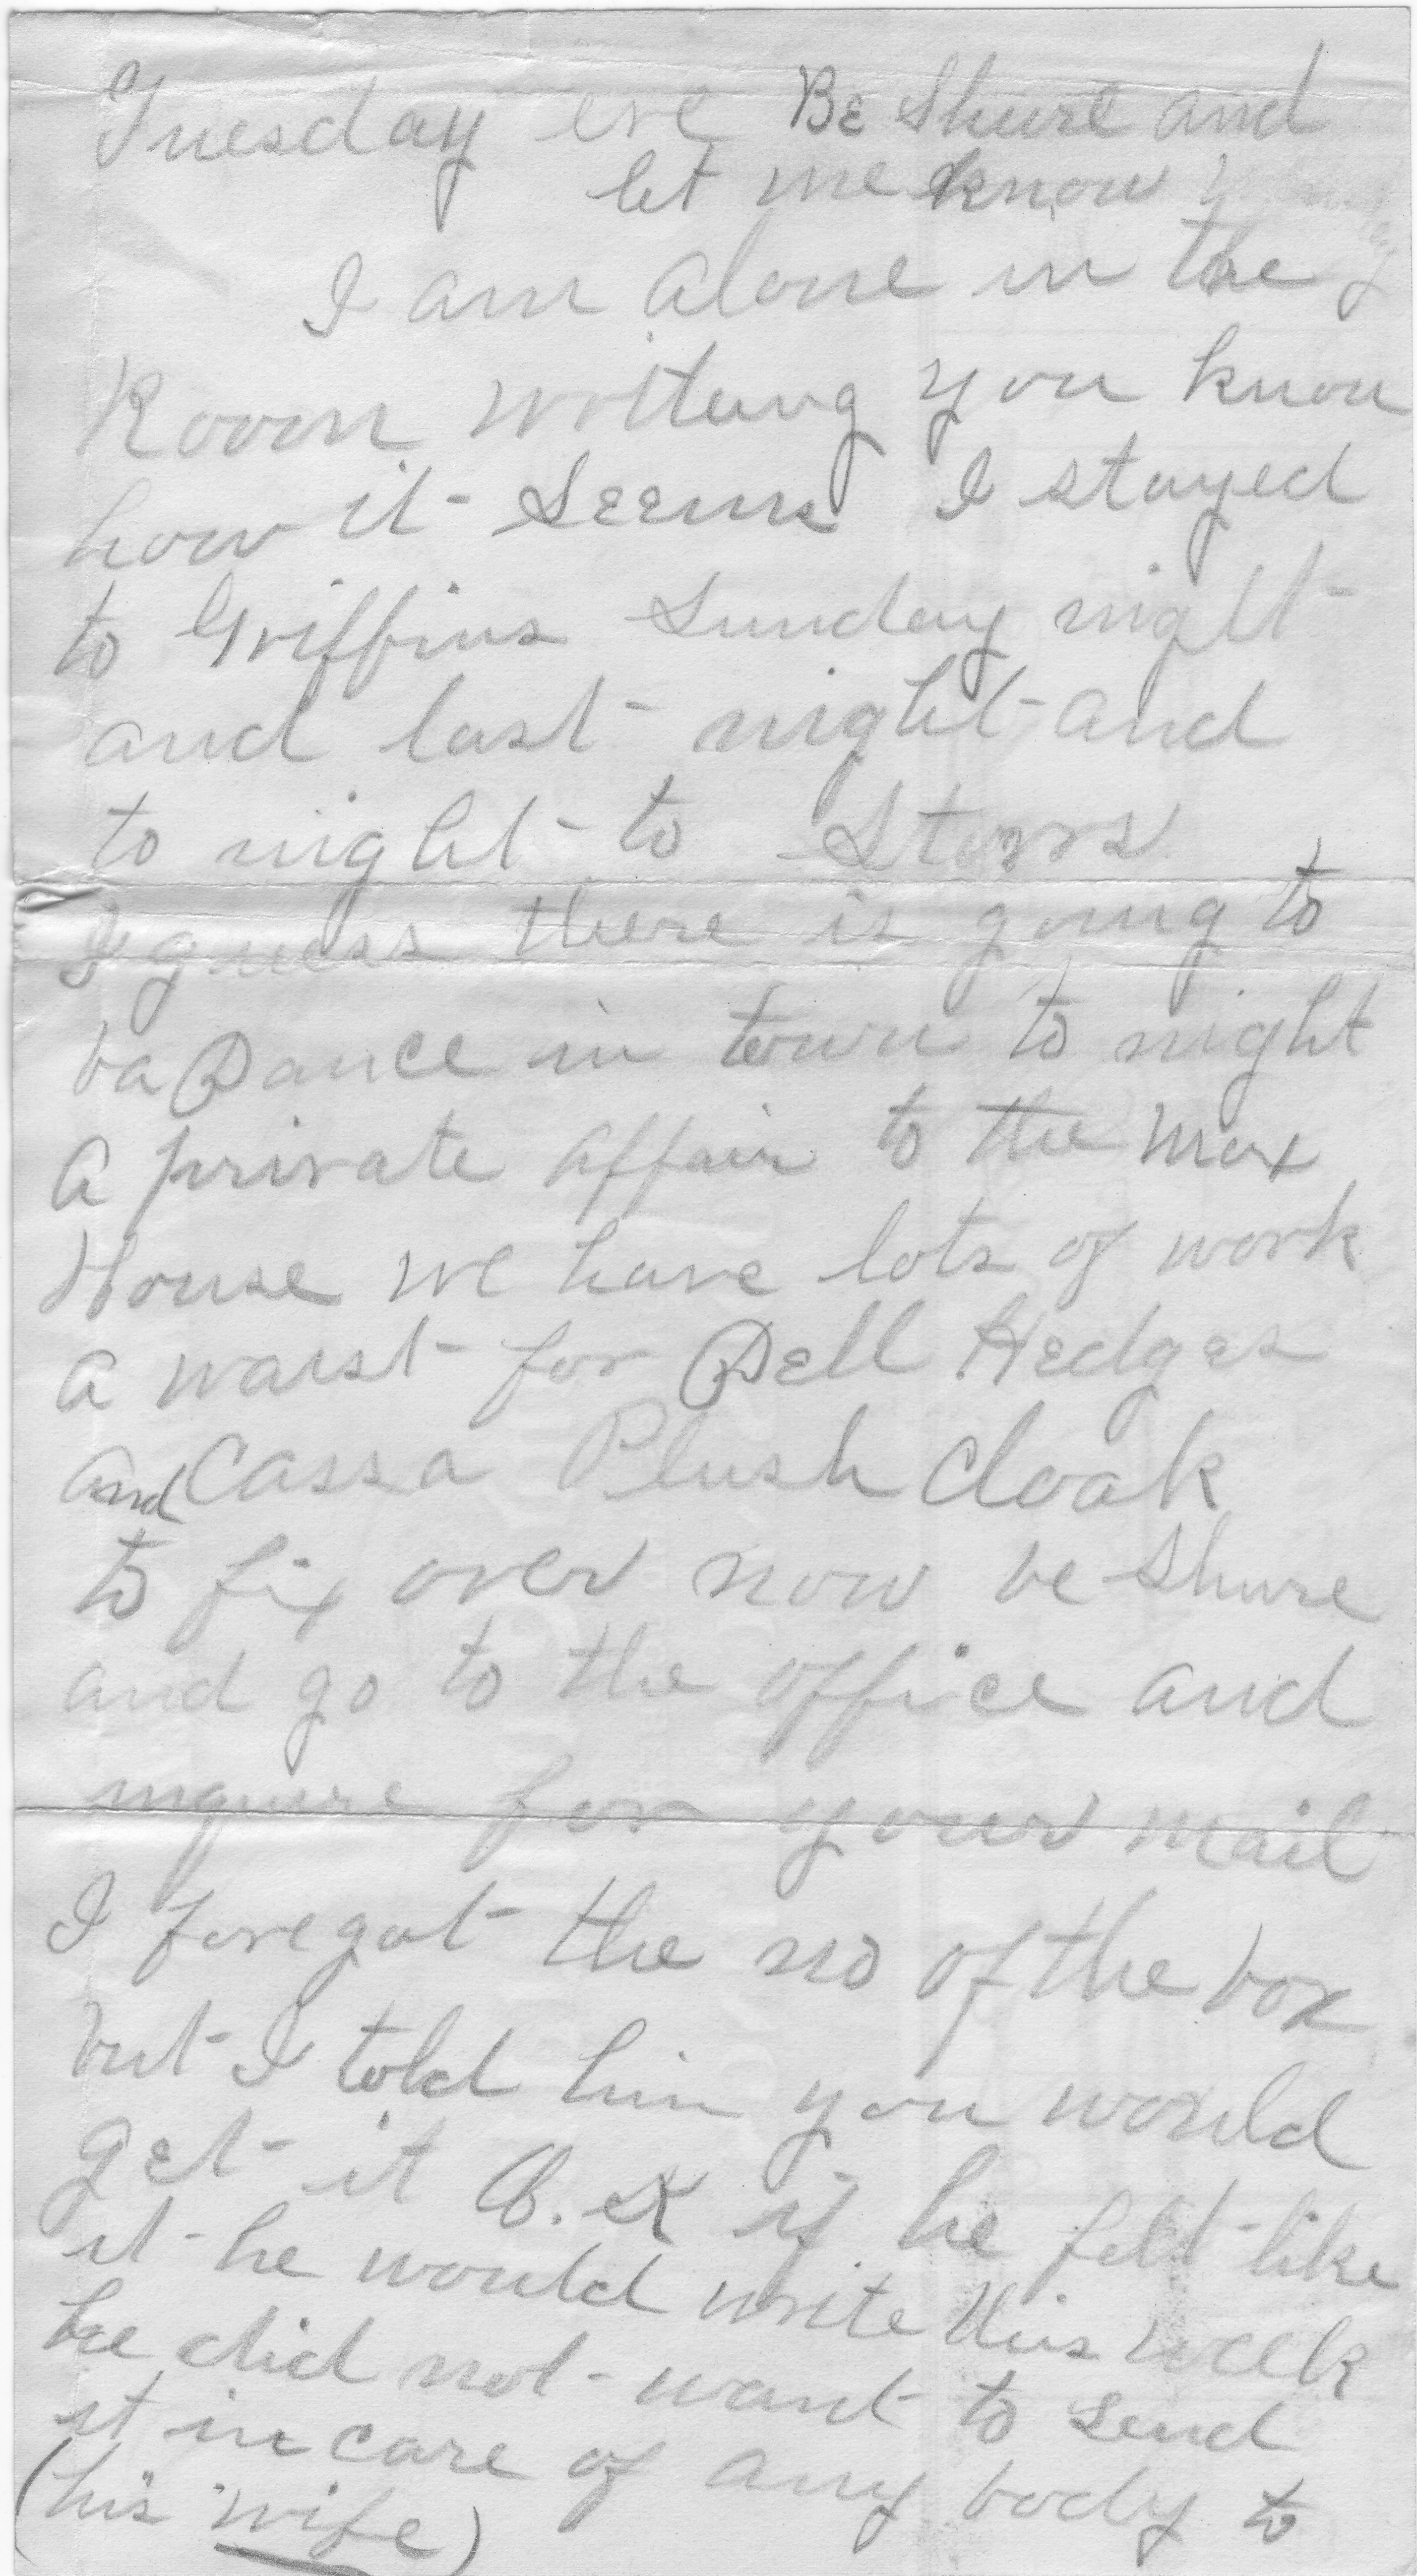 Tuesday eve Be Shure and
let me know
I am alone in the
Room writeing you know
how it seems I stayed
to Griffins Sunday night
and last night and
to night to Storrs
I guess there is going to
ba Dance in town to night
a private affair to the Max
House we have lots of work
a waist for Dell Hedges
and Cassa Plush Cloak
to fix over now be shure
and go to the office and
inquire for your mail
I foregot the no of the box
but I told him you would
get it O.K if he felt like
it he would write this week
he did not want to send
it in care of any body to
(his wife)